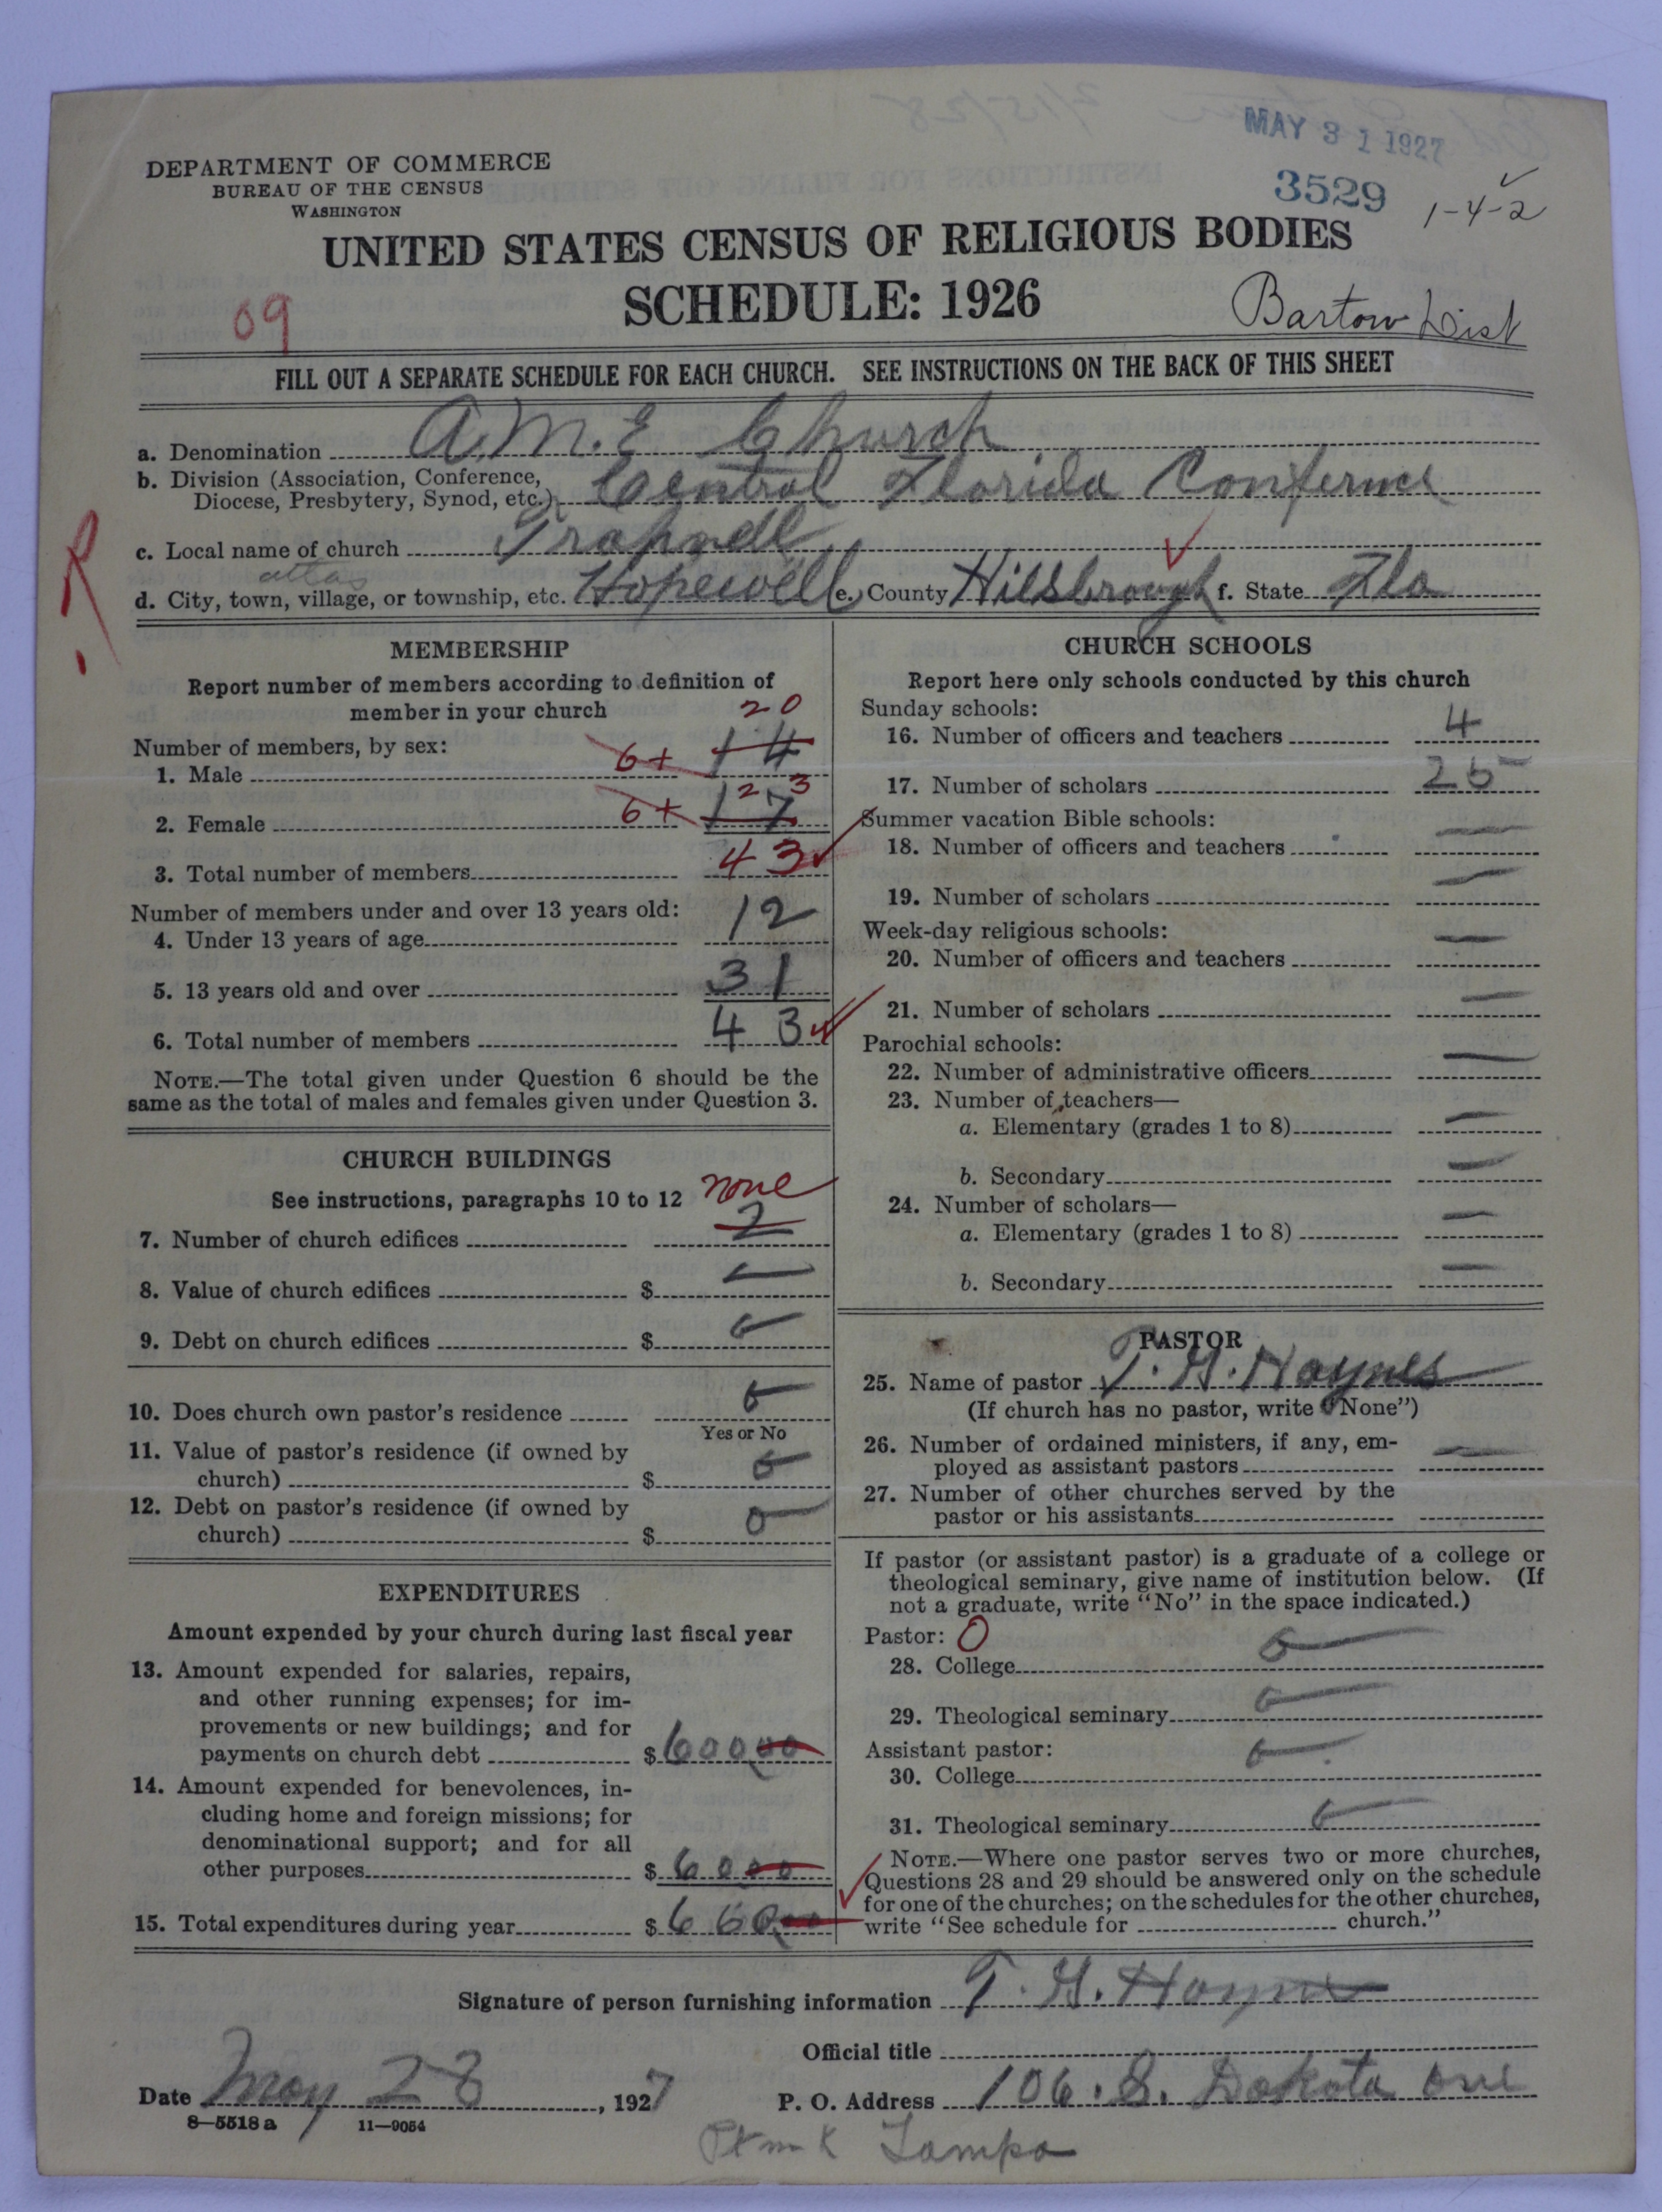 MAY 31 1927
DEPARTMENT OF COMMERCE
BUREAU OF THE CENSUS
WASHINGTON
3529
1-4-2
UNITED STATES CENSUS OF RELIGIOUS BODIES
SCHEDULE: 1926
09
Bartow Dist
FILL OUT A SEPARATE SCHEDULE FOR EACH CHURCH. SEE INSTRUCTIONS ON THE BACK OF THIS SHEET
a. Denomination A.M.E Church
b. Division (Association, Conference,
Diocese, Presbytery, Synod, etc.) Central Florida Conference
c. Local name of church Trapnell
R
atlas
d. City, town, village, or township, etc. Hopewell e. County Hillsbrough f. State Fla
MEMBERSHIP
Report number of members according to definition of
member in your church
20
Number of members, by sex:
1. Male 6+ 14
23
2. Female 6+ 17
3. Total number of members 43
Number of members under and over 13 years old:
4. Under 13 years of age 12
5. 13 years old and over 31
6. Total number of members 43
NOTE.—The total given under Question 6 should be the
same as the total of males and females given under Question 3.
CHURCH BUILDINGS
See instructions, paragraphs 10 to 12 none
7. Number of church edifices
8. Value of church edifices $
9. Debt on church edifices $
10. Does church own pastor's residence
Yes or No
11. Value of pastor's residence (if owned by
church) $
12. Debt on pastor's residence (if owned by
church) $
EXPENDITURES
Amount expended by your church during last fiscal year
13. Amount expended for salaries, repairs,
and other running expenses; for im-
provements or new buildings; and for
payments on church debt $ 60000
14. Amount expended for benevolences, in-
cluding home and foreign missions; for
denominational support; and for all
other purposes $ 6000
15. Total expenditures during year $ 66000
CHURCH SCHOOLS
Report here only schools conducted by this church
Sunday schools:
16. Number of officers and teachers 4
17. Number of scholars 25
Summer vacation Bible schools:
18. Number of officers and teachers —
19. Number of scholars —
Week-day religious schools:
20. Number of officers and teachers —
21. Number of scholars —
Parochial schools:
22. Number of administrative officers —
23. Number of teachers—
a. Elementary (grades 1 to 8) —
b. Secondary —
24. Number of scholars—
a. Elementary (grades 1 to 8) —
b. Secondary —
PASTOR
25. Name of pastor T. G. Haynes
(If church has no pastor, write "None")
26. Number of ordained ministers, if any, em-
ployed as assistant pastors —
27. Number of other churches served by the
pastor or his assistants
If pastor (or assistant pastor) is a graduate of a college or
theological seminary, give name of institution below. (If
not a graduate, write "No" in the space indicated.)
Pastor: 0
28. College
29. Theological seminary
Assistant pastor:
30. College
31. Theological seminary
NOTE.—Where one pastor serves two or more churches,
Questions 28 and 29 should be answered only on the schedule
for one of the churches; on the schedules for the other churches,
write "See schedule for church."
Signature of person furnishing information T. G. Haynes
Official title
Date May 28, 1927 P. O. Address 106. S. Dakota ave
8—5518 a 11—9054
Ptmk Tampa